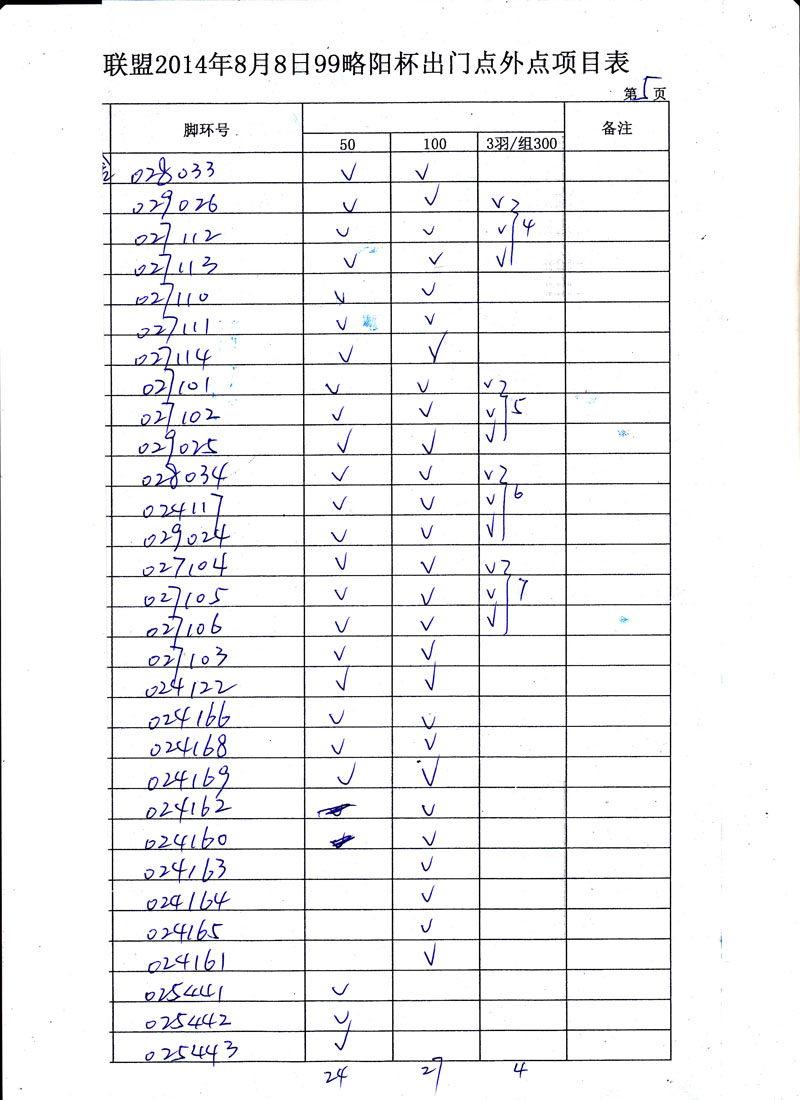 联盟2014年8月8日99略阳杯出门点外点项目表
第5页
脚环号 备注
50 100 3羽/组300
028033 ✓ ✓
029026 ✓ ✓ ✓
027112 ✓ ✓ ✓ 4
027113 ✓ ✓ ✓
027110 ✓ ✓
027111 ✓ ✓
027114 ✓ ✓
027101 ✓ ✓ ✓
027102 ✓ ✓ ✓ 5
029025 ✓ ✓ ✓
028034 ✓ ✓ ✓
024117 ✓ ✓ ✓ 6
029024 ✓ ✓ ✓
027104 ✓ ✓ ✓
027105 ✓ ✓ ✓ 7
027106 ✓ ✓ ✓
027103 ✓ ✓
024122 ✓ ✓
024166 ✓ ✓
024168 ✓ ✓
024169 ✓ ✓
024162 ✓
024160 ✓
024163 ✓
024164 ✓
024165 ✓
024161 ✓
025441 ✓
025442 ✓
025443 ✓
24 27 4